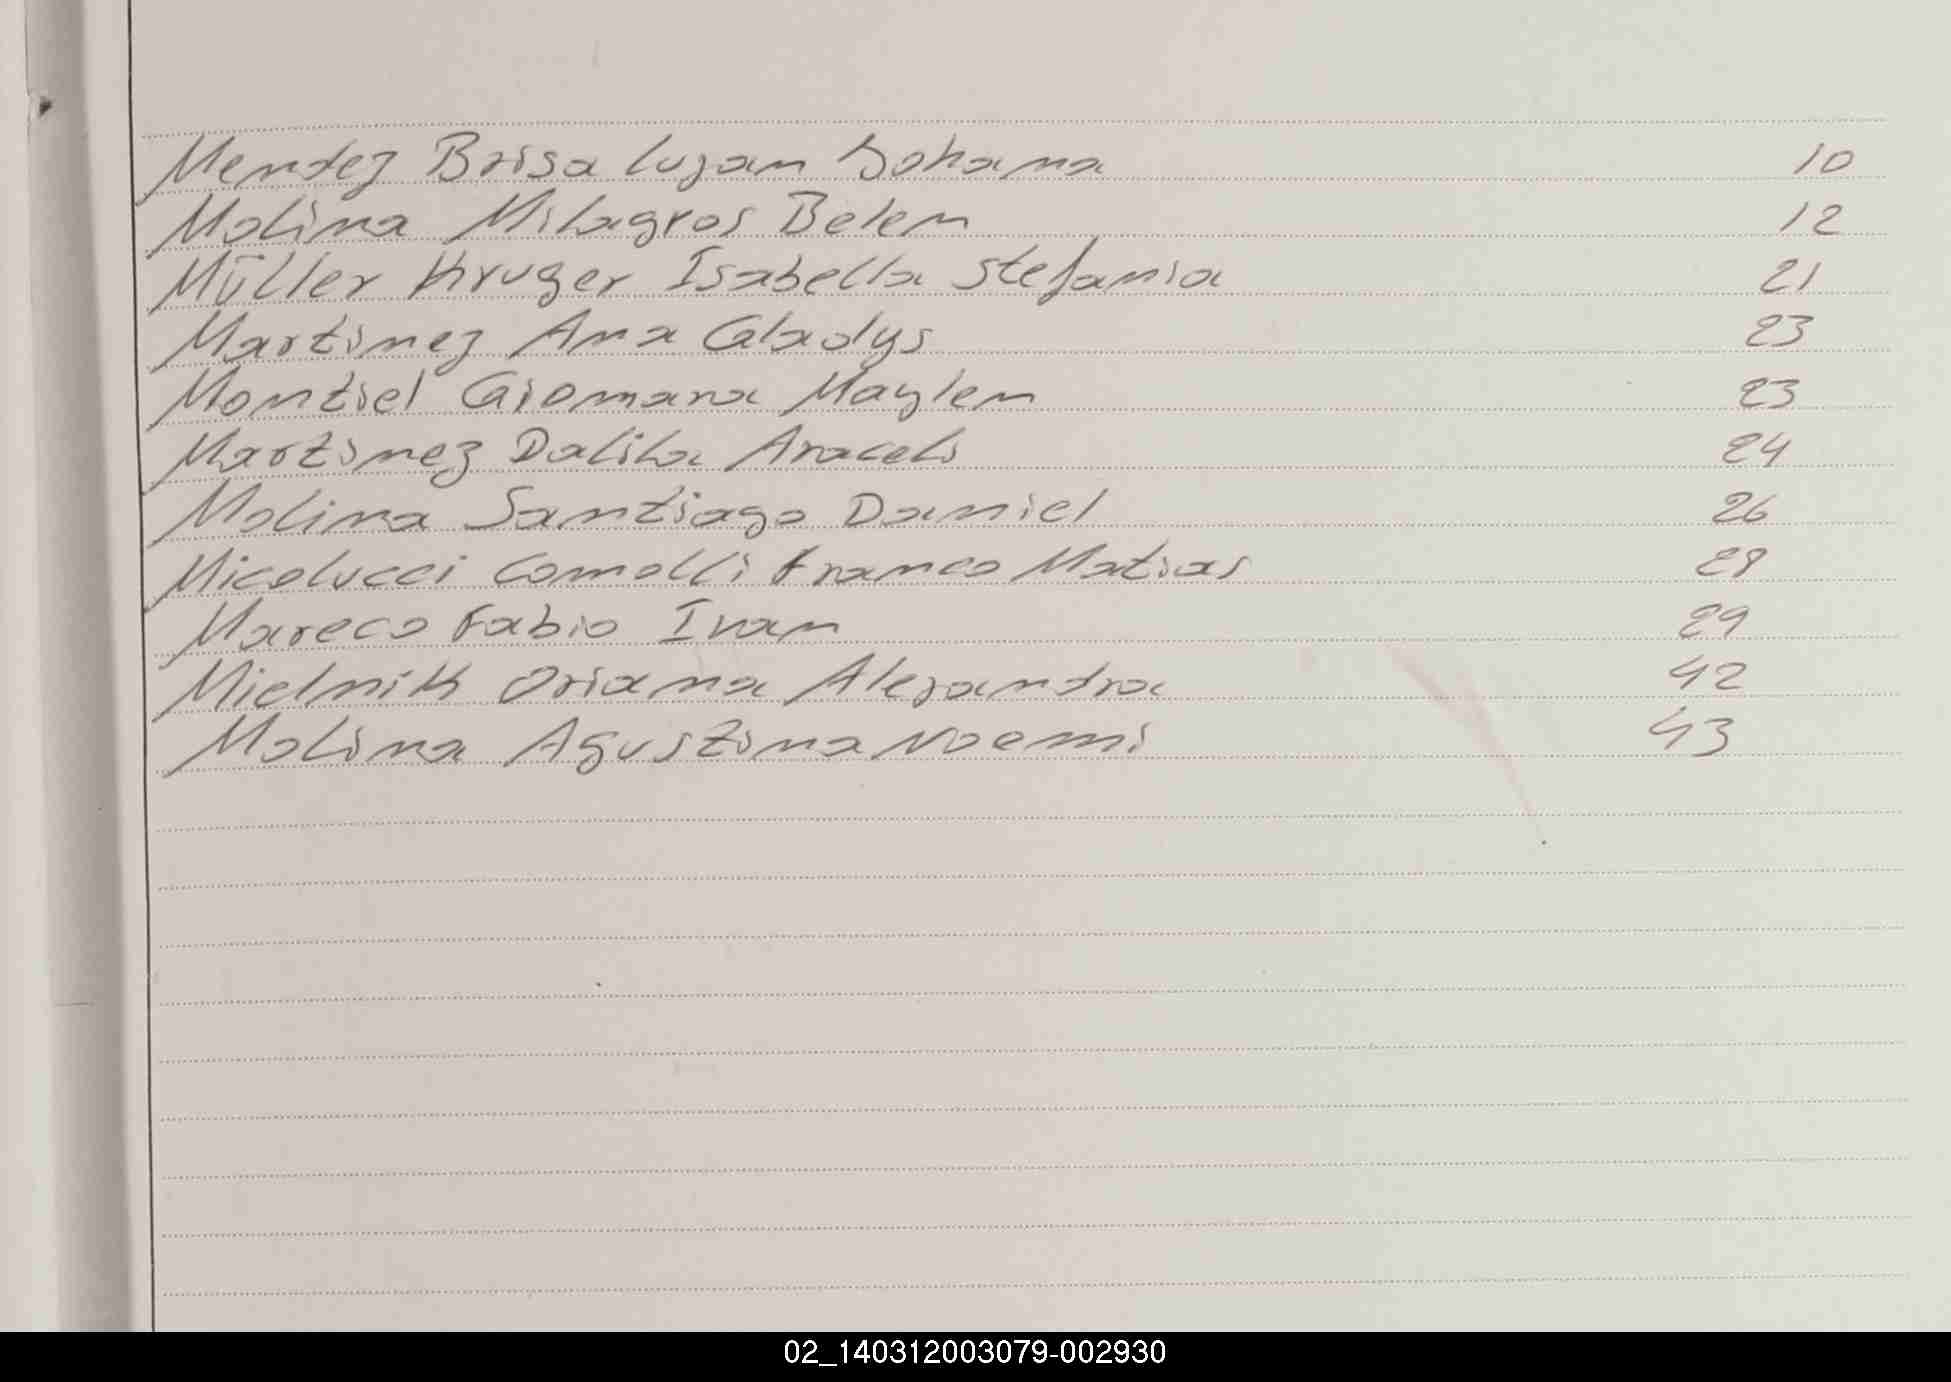 Mendez Brisa Lujan Johana 10
Molina Milagros Belen 12
Müller Kruger Isabella Stefania 21
Martinez Ana Gladys 23
Montiel Giomara Maylen 23
Martinez Dalila Araceli 24
Molina Santiago Daniel 26
Micolucci Comolli Franco Matias 28
Mareco Fabio Ivan 29
Mielnik Oriana Alejandra 42
Molina Agustina Noemi 43
02_140312003079-002930